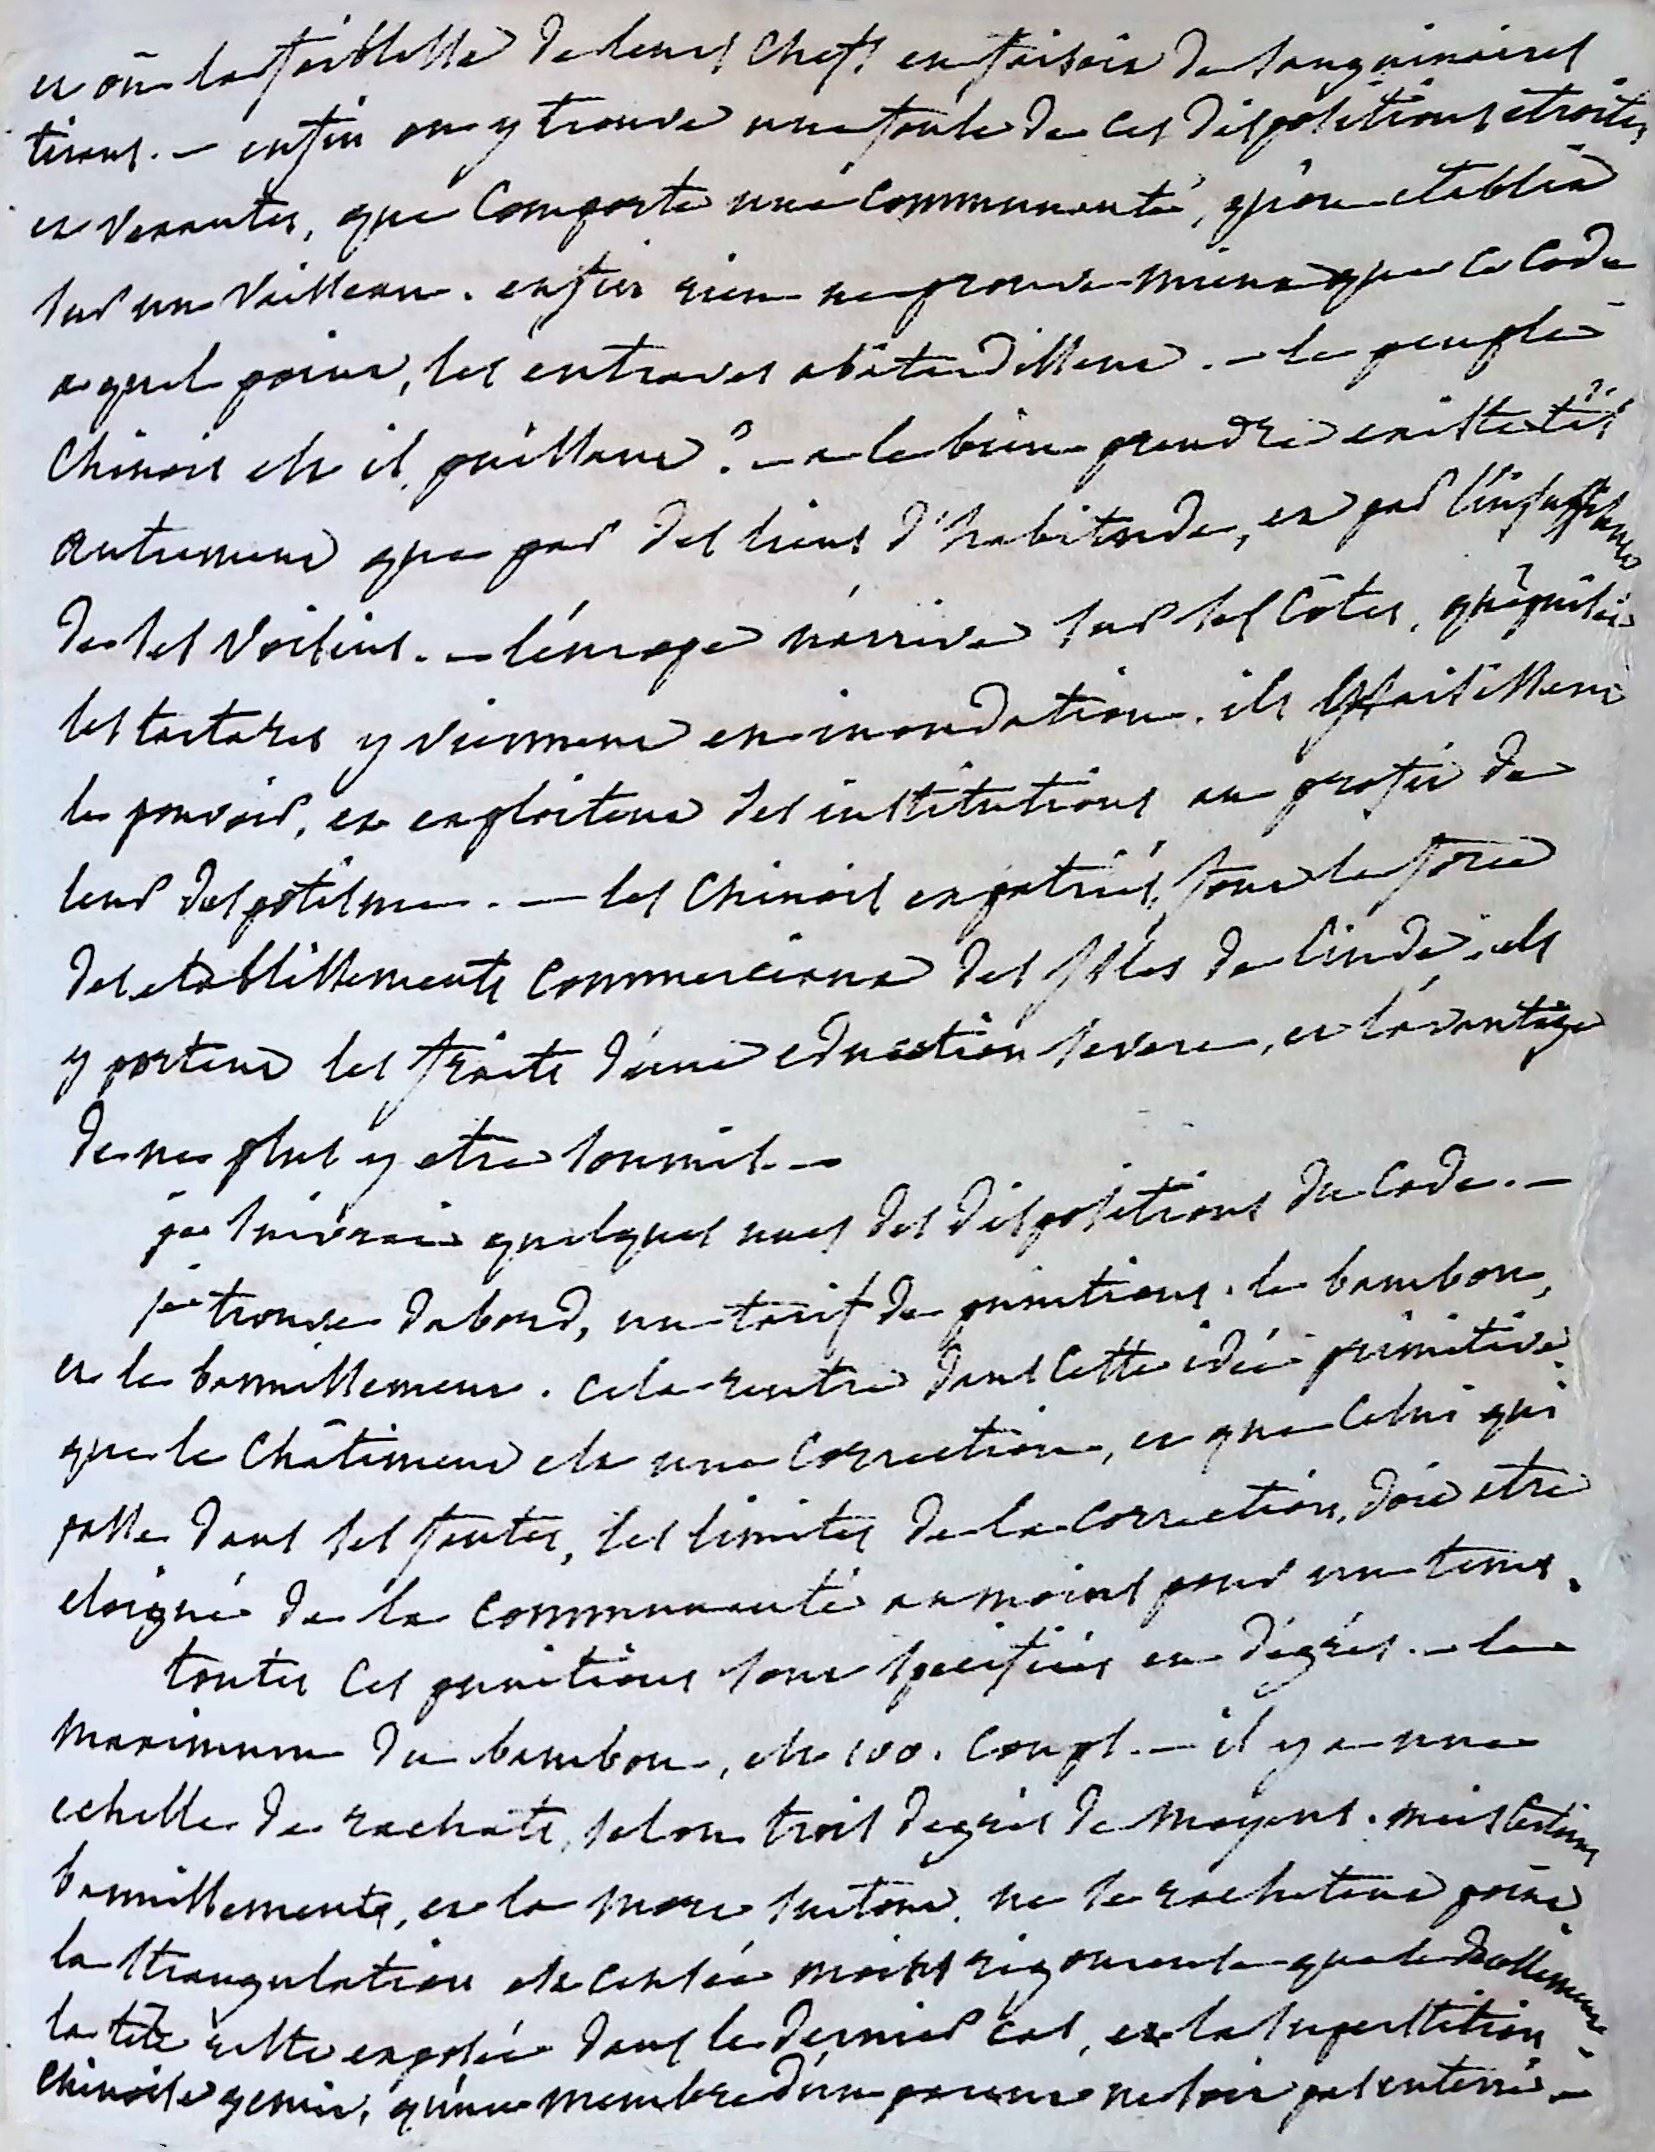 et où la faiblesse de leurs chefs en faisoit de sanguinaires
tirans. — enfin on y trouve une foule de ces dispositions etroites
et vexantes, que comporte une communauté, qu'on etablit
sur un vaisseau. enfin rien ne prouve mieux que ce code
a quel point, les entraves abâtardissent. — le peuple
chinois est il puissant ? — a le bien prendre existe-t-il
autrement que par des liens d'habitude, et par l'insuffisance
de ses voisins. — l'européen n'arrive sur ses côtes, qu'épuisé
les tartares y viennent en inondation. ils saisissent
le pouvoir, et exploitent des institutions au profit de
leur despotisme. — les chinois expatriés, font la force
des etablissements commerciaux des isles de l'inde. ils
y portent les fruits d'une education severe, et l'avantage
de ne plus y etre soumis. —
je suivrai quelques unes des dispositions du code. —
je trouve dabord, un tarif de punitions. le bambou,
et le bannissement. cela rentre dans cette idée primitive
que le châtiment est une correction, et que celui qui
passe dans ses fautes, les limites de la correction, doit etre
eloigné de la communauté au moins pour un tems.
toutes ces punitions sont specifiées en dégrés. — le
maximum du bambou, est 100. coups. — il y a une
echelle de rachats, selon trois degrés de moyens. mais certains
bannissements, et la mort surtout, ne se rachetent point
la strangulation est censée moins rigoureuse que le decollement
la tête reste exposée dans le dernier cas, et la superstition
chinoise gemit, qu'un membre d'un parent ne soit pas enterré. —